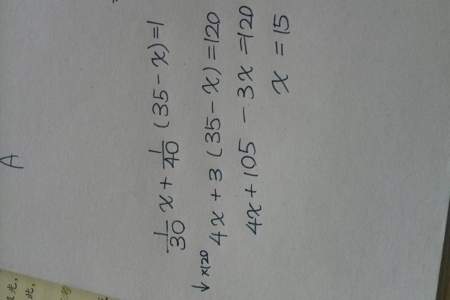 A
1/30 x + 1/40 (35 - x) = 1
↓×120
4x + 3 (35 - x) = 120
4x + 105 - 3x = 120
x = 15